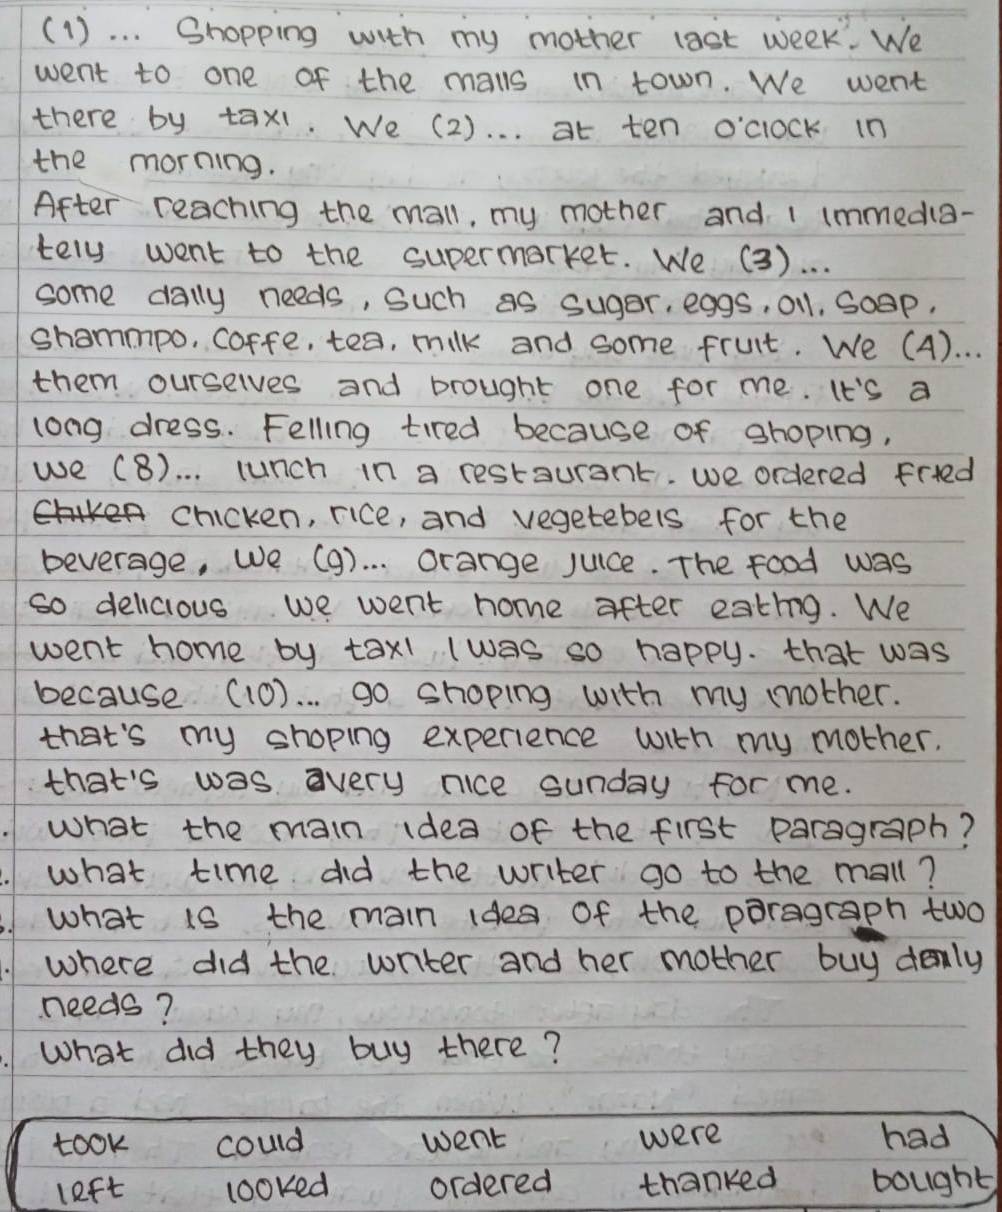 (1) ... Shopping with my mother last week. We
went to one of the malls in town. We went
there by taxi. We (2)... at ten o'clock in
the morning.
After reaching the mall, my mother and I immedia-
tely went to the supermarket. We (3)...
some daily needs, such as sugar, eggs, oil, soap,
shammpo, coffe, tea, milk and some fruit. We (4)...
them ourselves and brought one for me. It's a
long dress. Felling tired because of shoping,
we (8)... lunch in a restaurant. we ordered fried
Chiken chicken, rice, and vegetebels for the
beverage, we (9)... orange juice. The food was
so delicious. we went home after eating. We
went home by taxi I was so happy. that was
because (10)... go shoping with my mother.
that's my shoping experience with my mother.
that's was avery nice sunday for me.
. What the main idea of the first paragraph?
. what time did the writer go to the mall?
. what is the main idea of the paragraph two
. where did the writer and her mother buy daily
needs?
. what did they buy there?
took could went were had
left looked ordered thanked bought